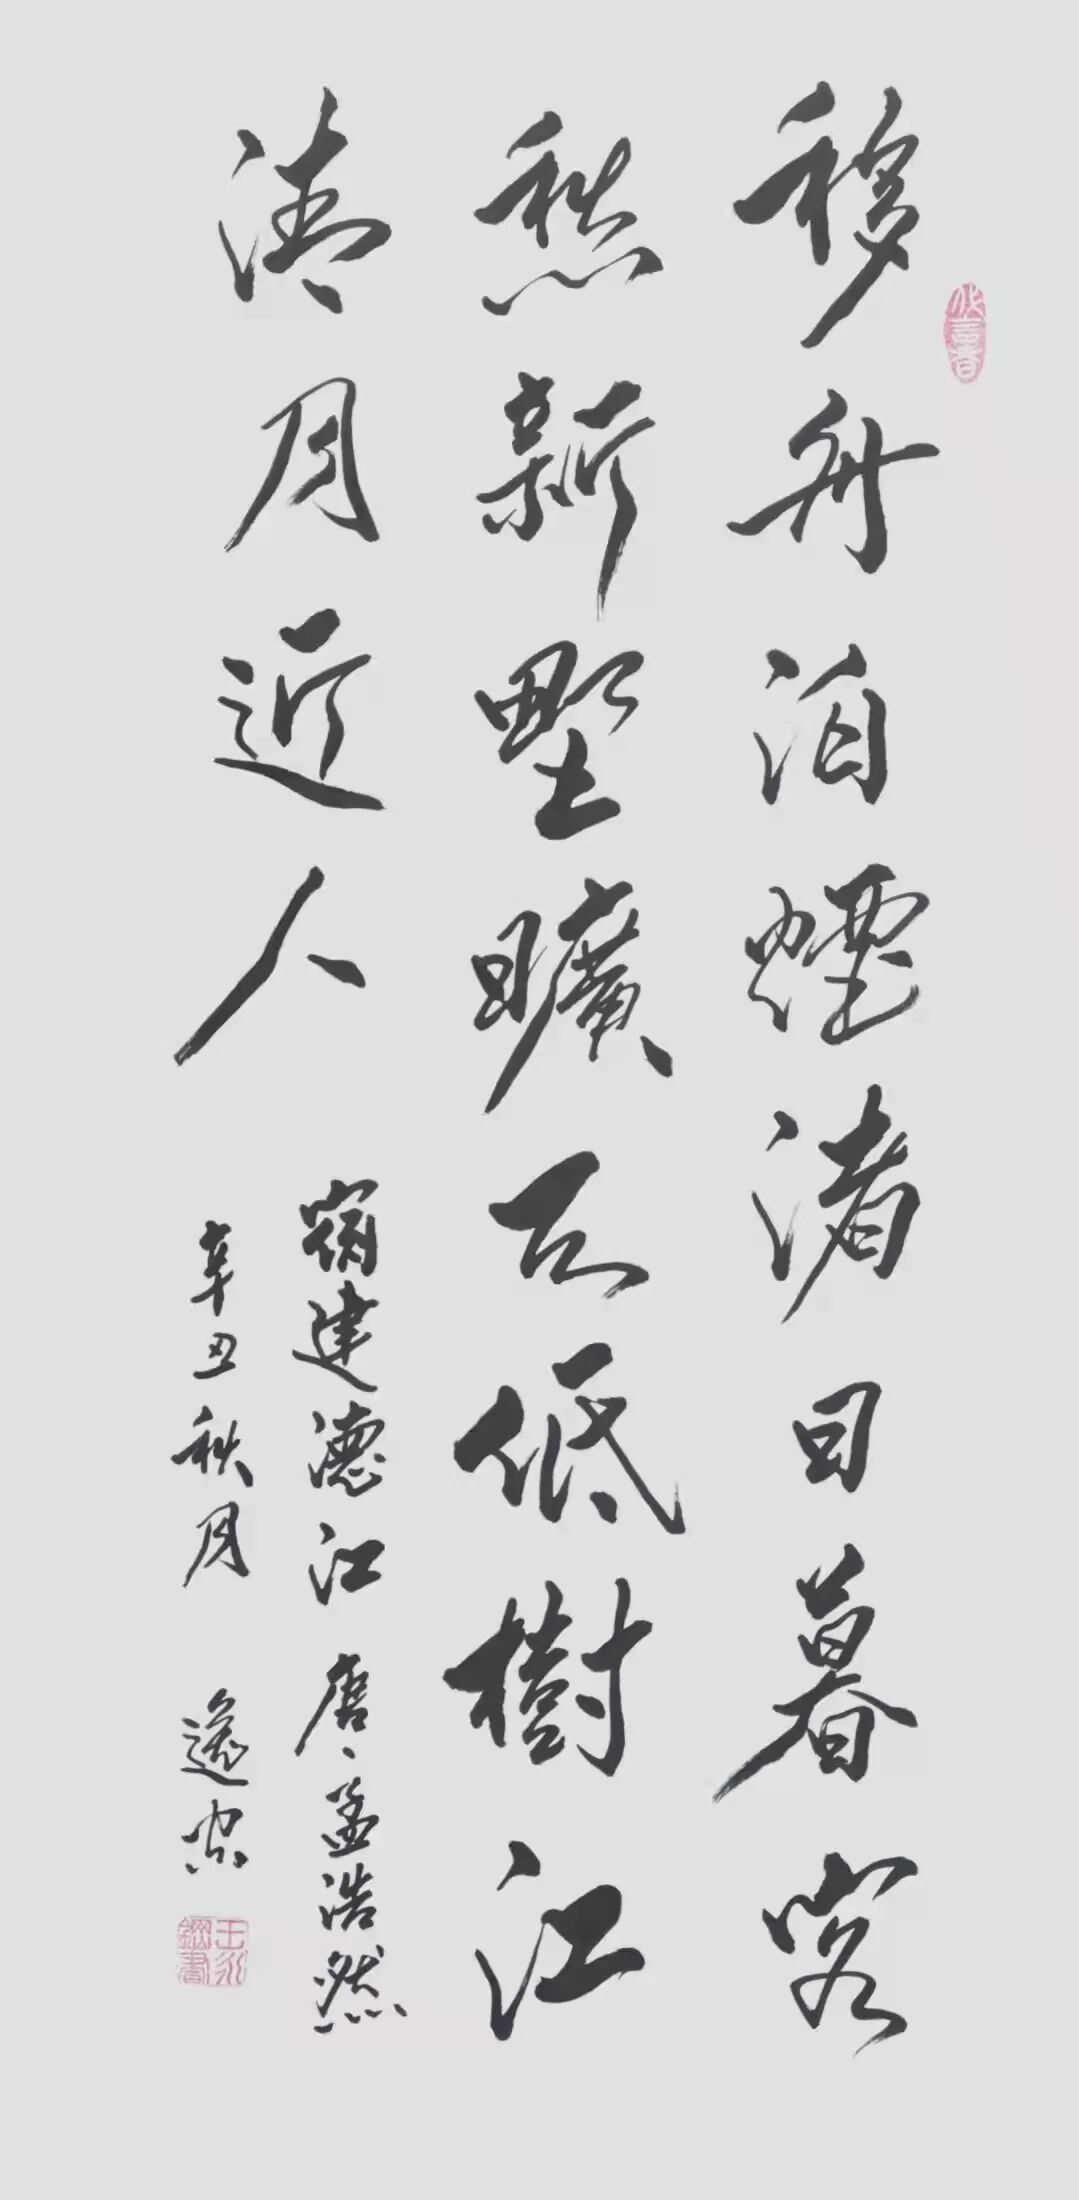 移舟泊煙渚日暮客
愁新墅曠天低樹江
清月近人
宿建德江 唐、孟浩然
辛丑秋月
王永鋼書